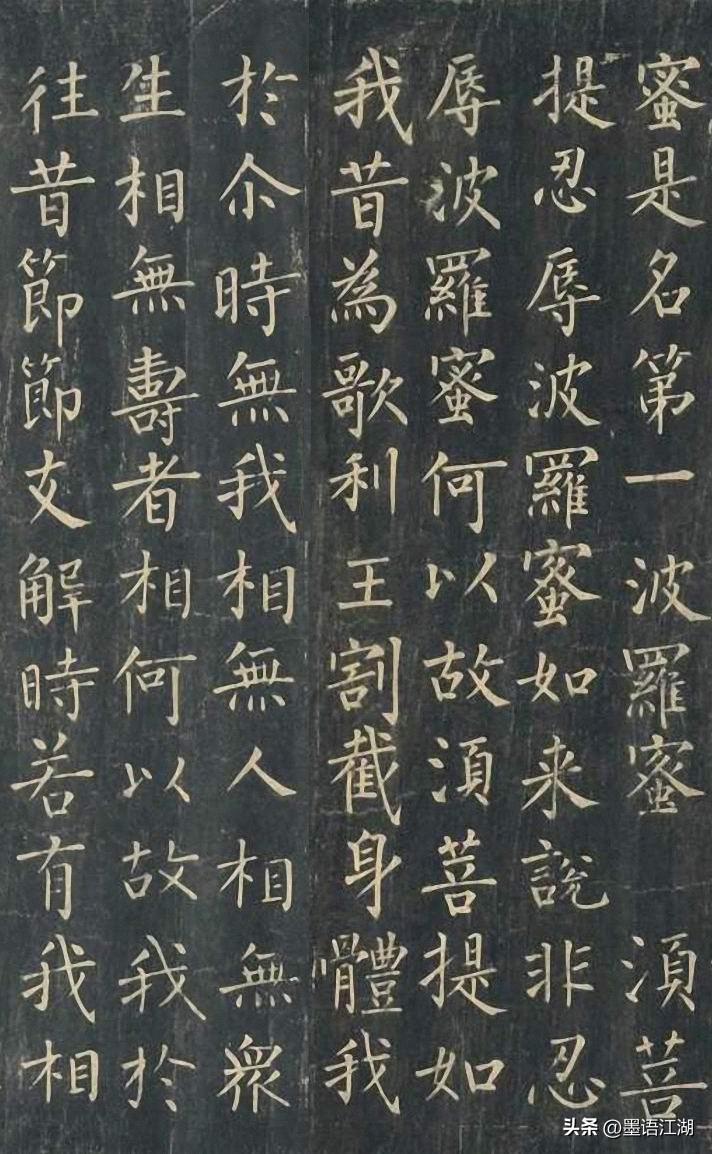 蜜是名第一波羅蜜　須菩
提忍辱波羅蜜如来說非忍
辱波羅蜜何以故須菩提如
我昔為歌利王割截身體我
於尒時無我相無人相無衆
生相無壽者相何以故我於
往昔節節支解時若有我相
头条 @墨语江湖